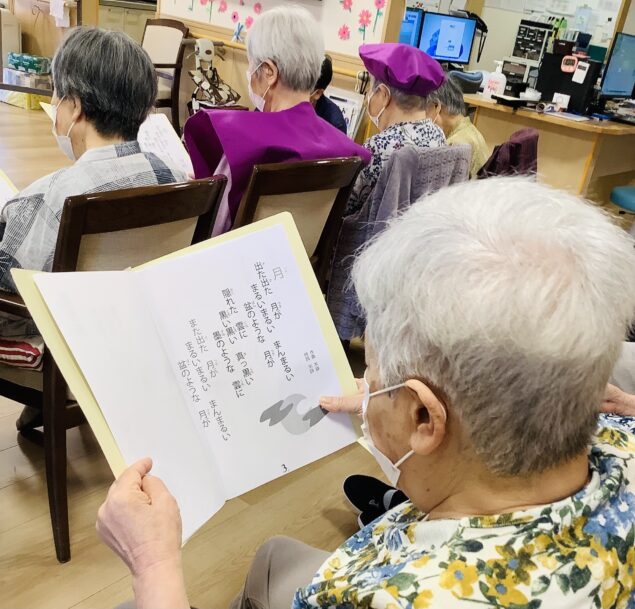 月
出た出た　月が
まるいまるい　まんまるい
盆のような　月が
隠れた　雲に
黒い黒い　真っ黒い
墨のような　雲に
また出た　月が
まるいまるい　まんまるい
盆のような　月が
3